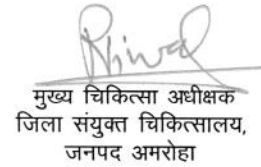 मुख्य चिकित्सा अधीक्षक
जिला संयुक्त चिकित्सालय,
जनपद अमरोहा